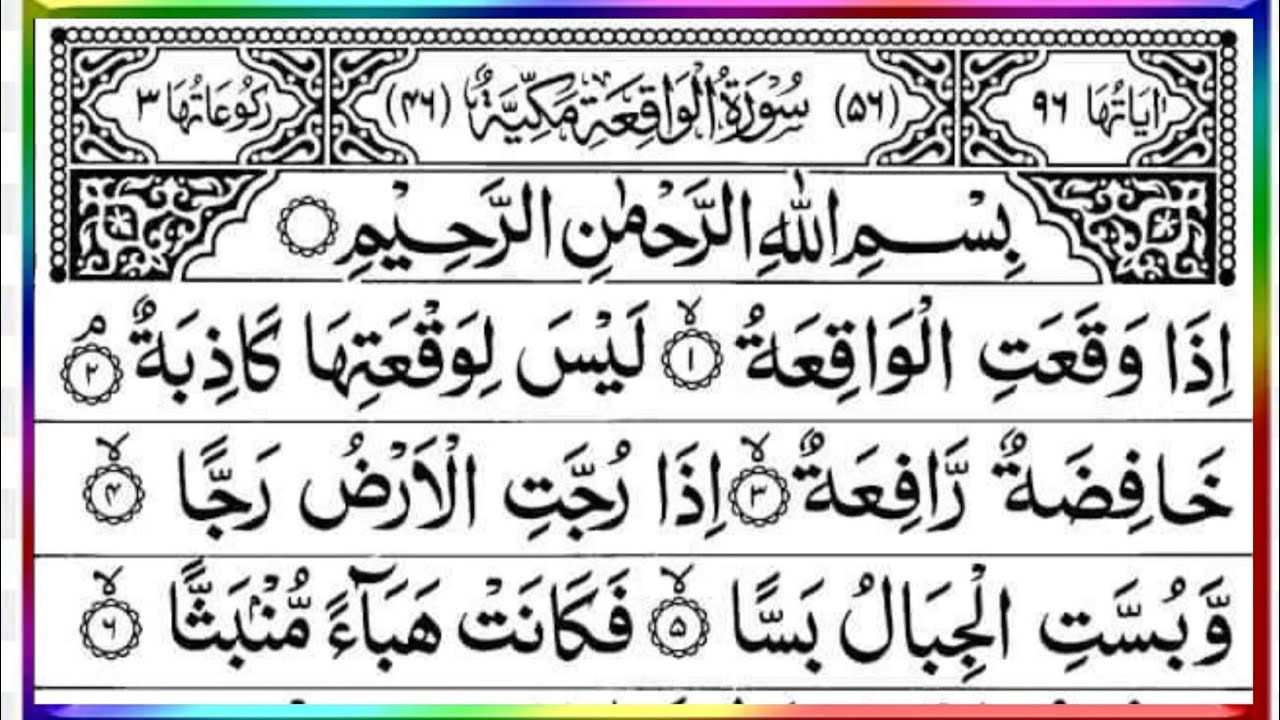 اٰيَاتُهَا ٩٦ (٥٦) سُوْرَةُ الْوَاقِعَةِ مَكِّيَّةٌ (٤٦) رُكُوْعَاتُهَا ٣
بِسْمِ اللّٰهِ الرَّحْمٰنِ الرَّحِيْمِ
اِذَا وَقَعَتِ الْوَاقِعَةُ ۙ‏﴿۱﴾ لَيْسَ لِوَقْعَتِهَا كَاذِبَةٌ ۘ‏﴿۲﴾
خَافِضَةٌ رَّافِعَةٌ ۙ‏﴿۳﴾ اِذَا رُجَّتِ الْاَرْضُ رَجًّا ۙ‏﴿۴﴾
وَّبُسَّتِ الْجِبَالُ بَسًّا ۙ‏﴿۵﴾ فَكَانَتْ هَبَآءً مُّنْۢبَثًّا ۙ‏﴿۶﴾